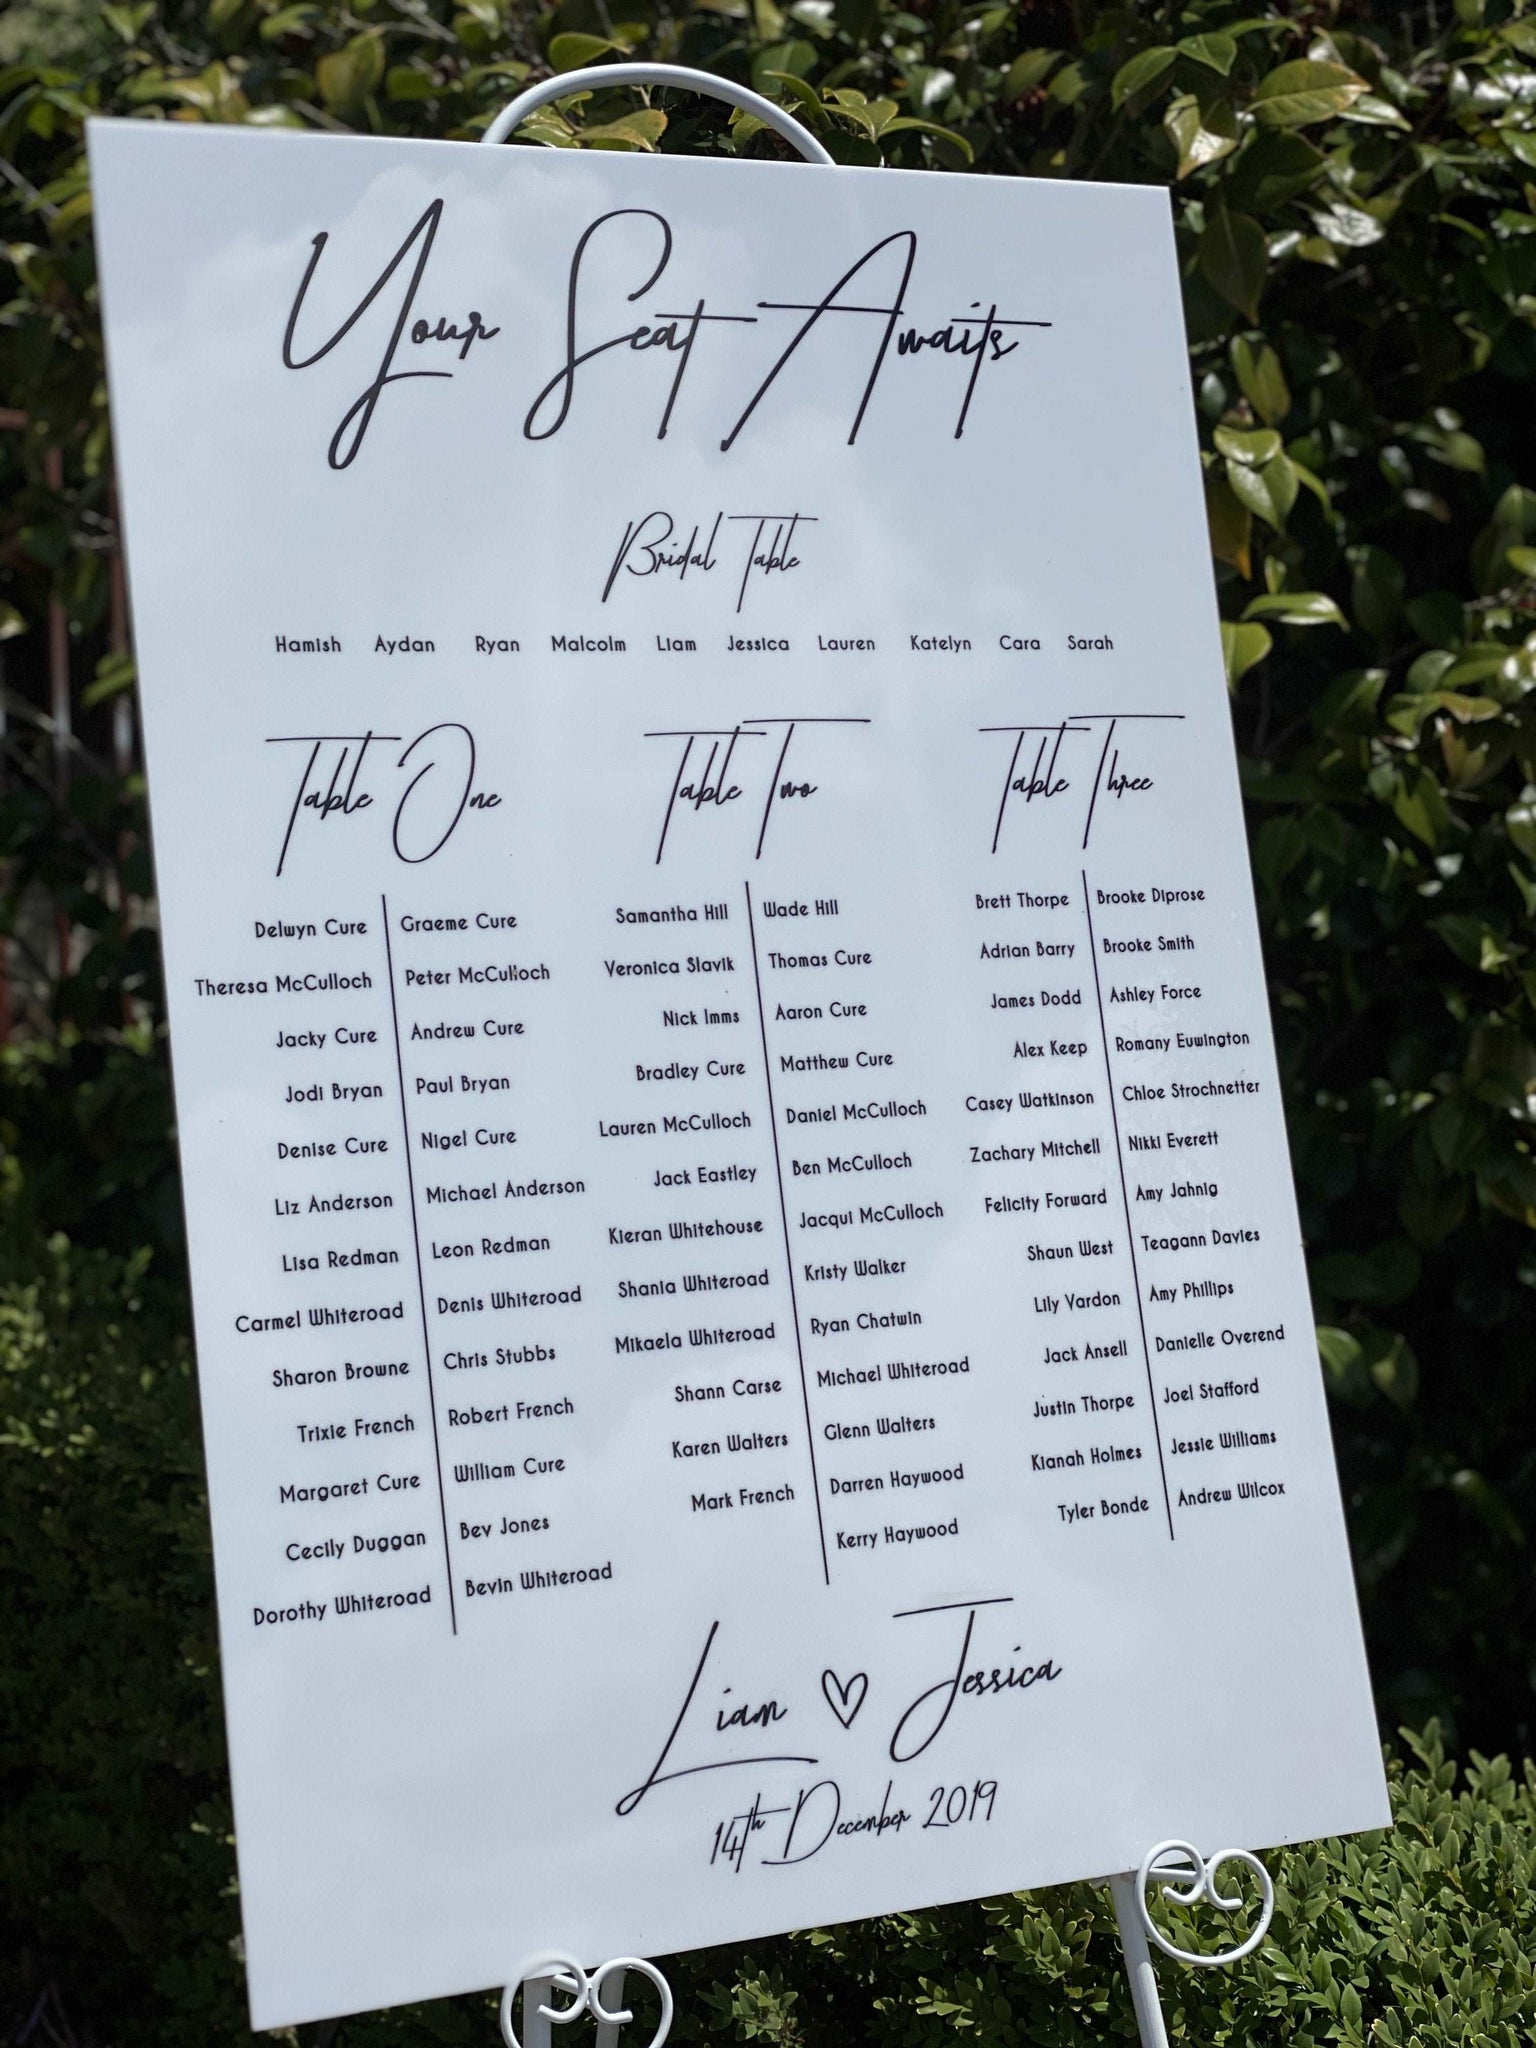 Your Seat Awaits
Bridal Table
Hamish Aydan Ryan Malcolm Liam Jessica Lauren Katelyn Cara Sarah
Table One
Delwyn Cure Graeme Cure
Theresa McCulloch Peter McCulloch
Jacky Cure Andrew Cure
Jodi Bryan Paul Bryan
Denise Cure Nigel Cure
Liz Anderson Michael Anderson
Lisa Redman Leon Redman
Carmel Whiteroad Denis Whiteroad
Sharon Browne Chris Stubbs
Trixie French Robert French
Margaret Cure William Cure
Cecily Duggan Bev Jones
Dorothy Whiteroad Bevin Whiteroad
Table Two
Samantha Hill Wade Hill
Veronica Slavik Thomas Cure
Nick Imms Aaron Cure
Bradley Cure Matthew Cure
Lauren McCulloch Daniel McCulloch
Jack Eastley Ben McCulloch
Kieran Whitehouse Jacqui McCulloch
Shania Whiteroad Kristy Walker
Mikaela Whiteroad Ryan Chatwin
Shann Carse Michael Whiteroad
Karen Walters Glenn Walters
Mark French Darren Haywood
Kerry Haywood
Table Three
Brett Thorpe Brooke Diprose
Adrian Barry Brooke Smith
James Dodd Ashley Force
Alex Keep Romany Euwington
Casey Watkinson Chloe Strochnetter
Zachary Mitchell Nikki Everett
Felicity Forward Amy Jahnig
Shaun West Teagann Davies
Lily Vardon Amy Phillips
Jack Ansell Danielle Overend
Justin Thorpe Joel Stafford
Kianah Holmes Jessie Williams
Tyler Bonde Andrew Wilcox
Liam ♡ Jessica
14th December 2019